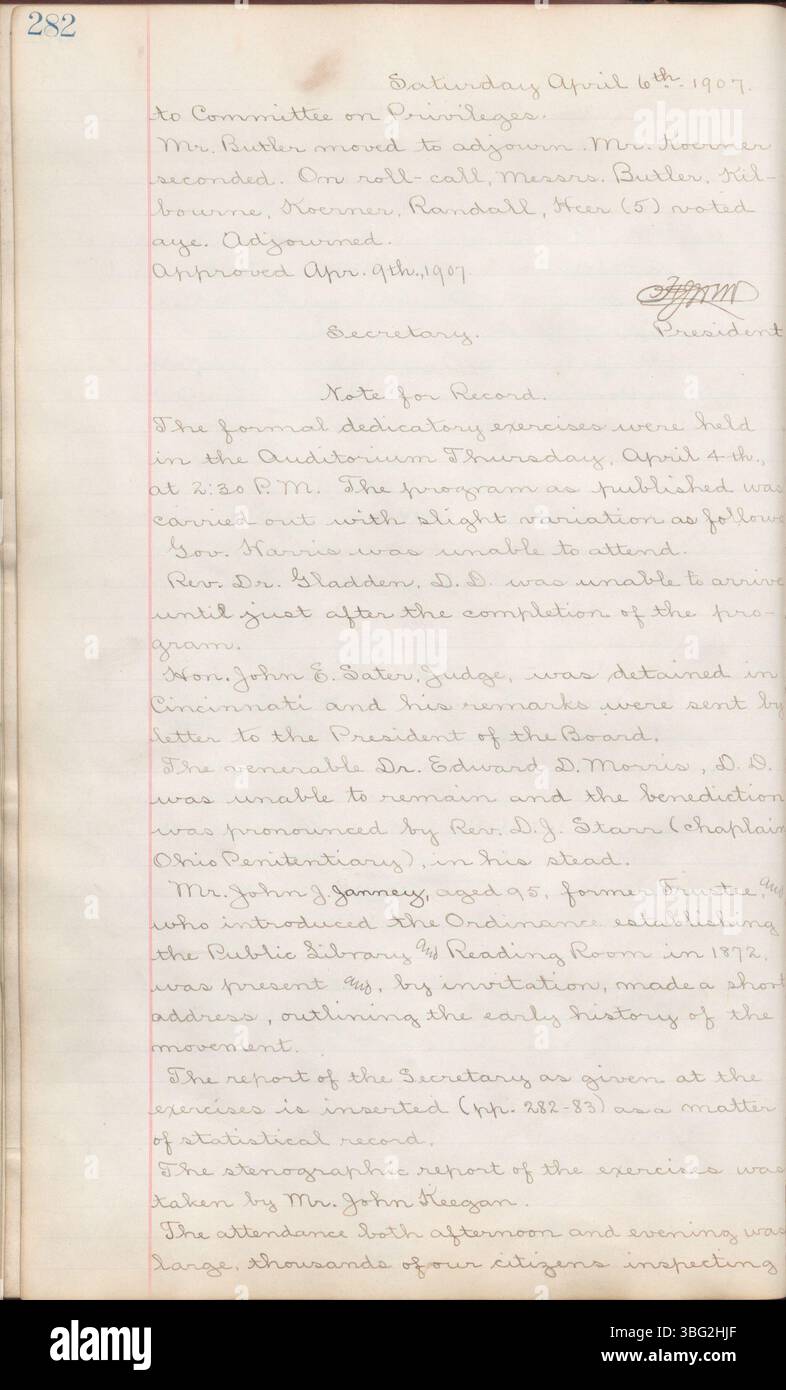 282
Saturday April 6th. 1907.
to Committee on Privileges.
Mr. Butler moved to adjourn. Mr. Koerner
seconded. On roll-call, Messrs. Butler, Kil-
bourne, Koerner, Randall, Heer (5) voted
aye. Adjourned.
Approved Apr. 9th., 1907
Secretary. President
Note for Record.
The formal dedicatory exercises were held
in the Auditorium Thursday, April 4th.,
at 2:30 P.M. The program as published was
carried out with slight variation as follows
Gov. Harris was unable to attend.
Rev. Dr. Gladden, D.D. was unable to arrive
until just after the completion of the pro-
gram.
Hon. John E. Sater, Judge, was detained in
Cincinnati and his remarks were sent by
letter to the President of the Board.
The venerable Dr. Edward D. Morris, D.D.
was unable to remain and the benediction
was pronounced by Rev. D.J. Starr (chaplain
Ohio Penitentiary), in his stead.
Mr. John J. Janney, aged 95, former Trustee, and
who introduced the Ordinance establishing
the Public Library and Reading Room in 1872,
was present and, by invitation, made a short
address, outlining the early history of the
movement.
The report of the Secretary as given at the
exercises is inserted (pp. 282-83) as a matter
of statistical record.
The stenographic report of the exercises was
taken by Mr. John Keegan.
The attendance both afternoon and evening was
large, thousands of our citizens inspecting
alamy
Image ID: 3BG2HJF
www.alamy.com